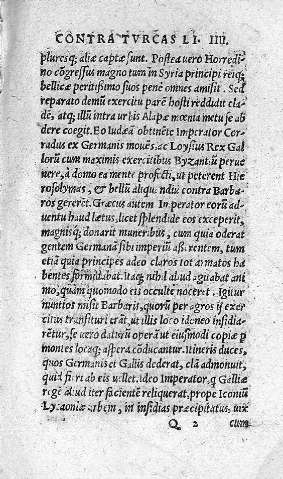 CONTRA TVRCAS LI. IIII.
pluresq; aliæ captæ sunt. Postea vero Horredi
no cōgressus magno tum in Syria principi reiq;
bellicæ peritissimo suos pene omnes amisit. Sed
reparato demū exercitu parē hosti reddidit cla
dē, atq; illū intra urbis Alapæ mœnia metu se ab
dere coegit. Eo Iudeā obtinēte Imperator Cor
radus ex Germanis mouēs, ac Loysius Rex Gal
lorū cum maximis exercitibus Byzantiū perue
nere, à domo ea mente profecti, ut peterent Hie
rosolymas, & bellū aliquādiu contra Barba
ros gererēt. Græcus autem Imperator eorū ad
uentu haud lætus, licet splēdide eos exceperit,
magnisq; donarit muneribus, cum quia oderat
gentem Germanā sibi imperiū asserentem, tum
etiā quia principes adeo claros tot armatos ha
bentes formidabat. Itaq; nihil aliud agitabat ani
mo, quàm quomodo eis occulte noceret. Igitur
nuntios misit Barbaris, quorū per agros is exer
citus transituri erāt, ut illis loco idoneo insidia
rētur, se uero daturū operā ut eiusmodi copiæ p
montes locaq; aspera cōducantur. Itineris duces,
quos Germanis et Gallis dederat, clā admonuit,
quid fieri ab eis uellet. ideo Imperator, q Galliæ
regē aliud iter facientē reliquerat, prope Iconiū
Lycaoniæ urbem, in insidias præcipitatus, uix
Q 2 cum